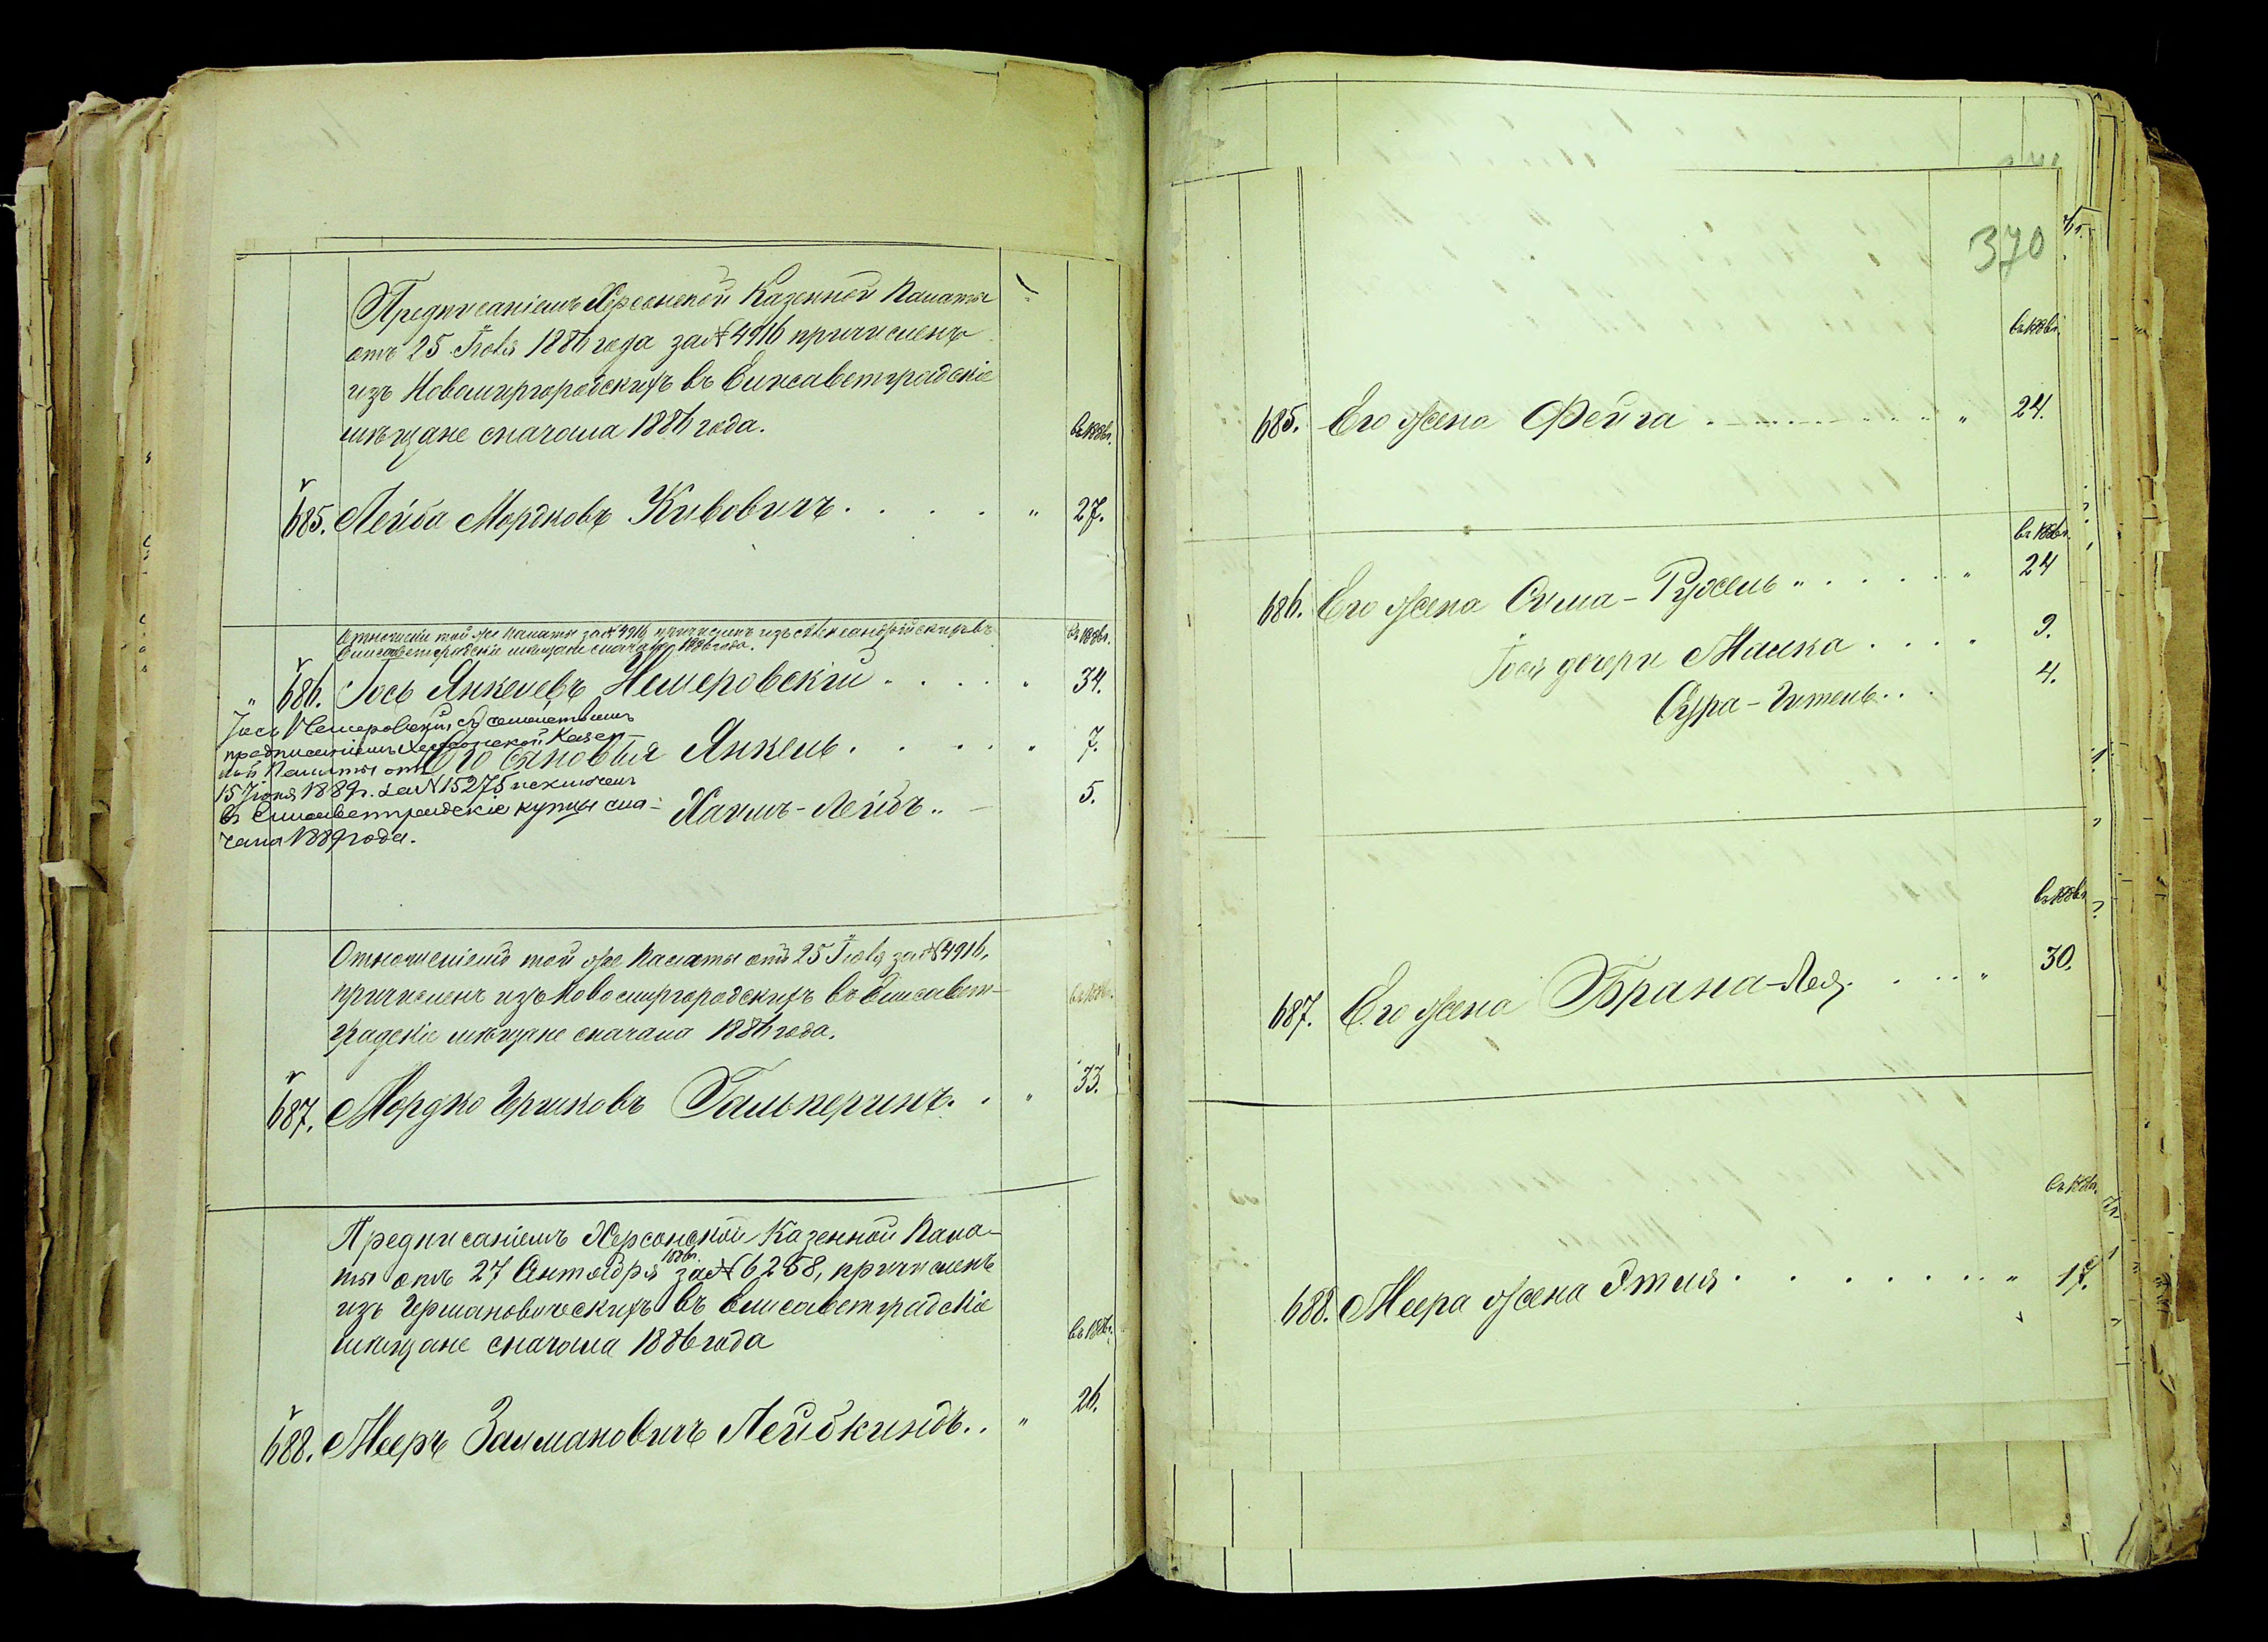 Предписаніемъ Херсонской Казенной Палаты
отъ 25 Іюля 1886 года за № 4916 причисленъ
изъ Новомиргородскихъ въ Елисаветградскіе
мѣщане сначала 1886 года.
въ 1886 г.
685. Лейба Мордковъ Кивовичъ . . . . " 27.
Отношеніи той же палаты за № 4916 причисленъ изъ Александрійскихъ въ
Елисаветградскіе мѣщане сначала 1886 года.
въ 1886 г.
" 686. Іось Янкелевъ Немеровскій . . . . . 34.
Іось Немеровскій съ семействомъ
предписаніемъ Херсонской Казен-
ной Палаты отъ
15 Іюня 1889 г. за № 15275 исключенъ
въ Елисаветградскіе купцы сна-
чала 1889 года.
Его сыновья Янкель . . . . . 7.
Хаимъ-Лейбъ . . 5.
Отношеніемъ той же Палаты отъ 25 Іюля за № 4916,
причисленъ изъ Новомиргородскихъ въ Елисавет-
градскіе мѣщане сначала 1886 года.
въ 1886 г.
687. Мордко Гершковъ Гальперинъ. . " 33.
Предписаніемъ Херсонской Казенной Пала-
ты отъ 27 Октября 1886 г. за № 6258, причисленъ
изъ въ Елисаветградскіе
мѣщане сначала 1886 года
въ 1886 г.
688. Мееръ Залмановичъ Лейбкиндъ . . " 26.
370
въ 1886 г.
685. Его жена Фейга . . . . . . . " 24.
въ 1886 г.
686. Его жена Сима-Рухель " . . . . " 24
Іося дочери Малка . . . . 9.
Сура-Гитель . . . 4.
въ 1886 г.
687. Его жена Брана-Лея. . . . " 30.
въ 1886 г.
688. Меера жена Этля . . . . . . . " 17.